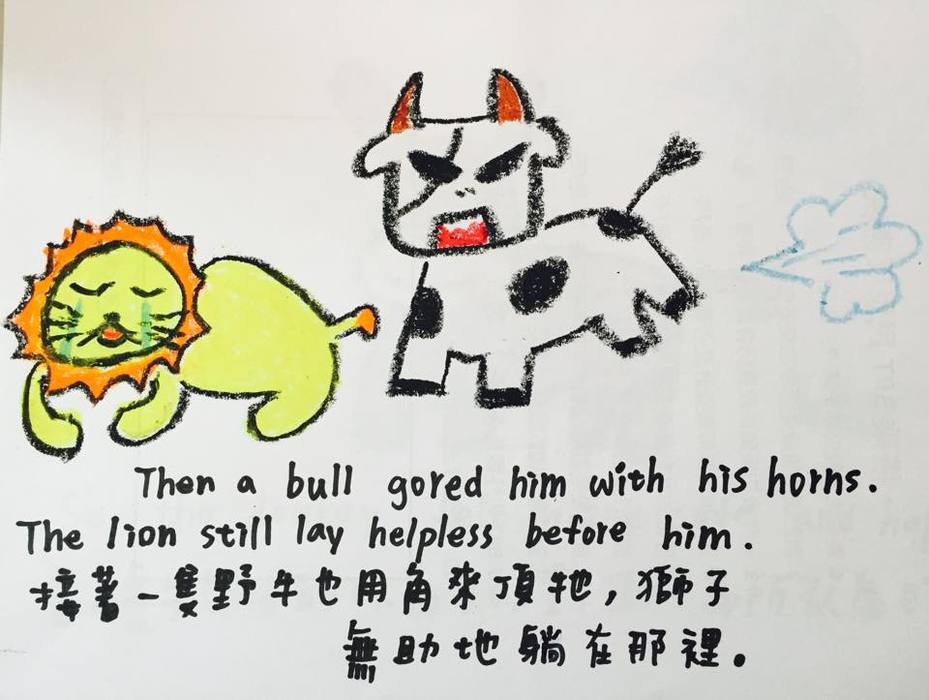 Then a bull gored him with his horns.
The lion still lay helpless before him.
接著一隻野牛也用角來頂牠，獅子
無助地躺在那裡。